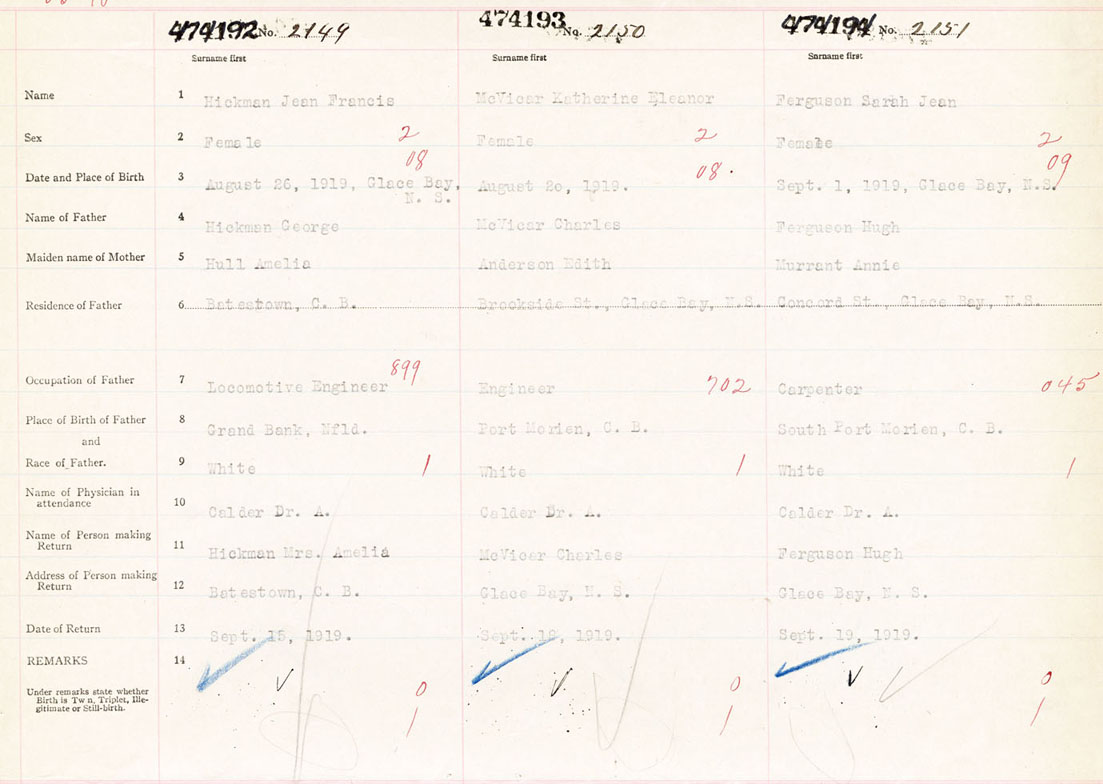 474192 No. 2149 474193 No. 2150 474194 No. 2151
Surname first Surname first Surname first
Name 1 Hickman Jean Francis McVicar Katherine Eleanor Ferguson Sarah Jean
Sex 2 Female 2 Female 2 Female 2
08 08. 09
Date and Place of Birth 3 August 26, 1919, Glace Bay, August 20, 1919. Sept. 1, 1919, Glace Bay, N.S.
N. S.
Name of Father 4 Hickman George McVicar Charles Ferguson Hugh
Maiden name of Mother 5 Hull Amelia Anderson Edith Murrant Annie
Residence of Father 6 Batestown, C. B. Brookside St., Glace Bay, N.S. Concord St., Glace Bay, N.S.
899
Occupation of Father 7 Locomotive Engineer Engineer 702 Carpenter 045
Place of Birth of Father 8 Grand Bank, Nfld. Port Morien, C. B. South Port Morien, C. B.
and
Race of Father. 9 White 1 White 1 White 1
Name of Physician in
attendance 10 Calder Dr. A. Calder Dr. A. Calder Dr. A.
Name of Person making
Return 11 Hickman Mrs. Amelia McVicar Charles Ferguson Hugh
Address of Person making
Return 12 Batestown, C. B. Glace Bay, N. S. Glace Bay, N. S.
Date of Return 13 Sept. 15, 1919. Sept. 1919. Sept. 19, 1919.
REMARKS 14
Under remarks state whether
Birth is Twn, Triplet, Ille-
gitimate or Still-birth.
0 0 0
1 1 1